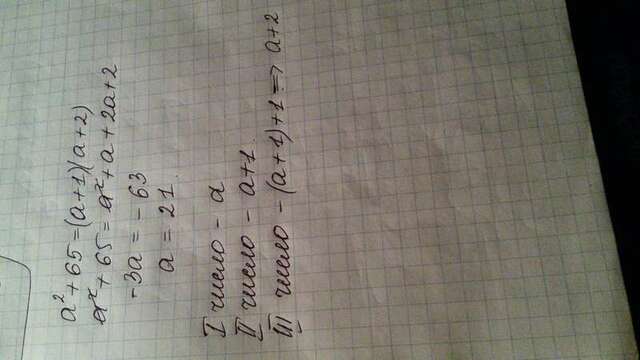 a² + 65 = (a+1)(a+2)
a² + 65 = a² + a + 2a + 2
-3a = -63
a = 21.
I число - a
II число - a+1.
III число - (a+1)+1 => a+2